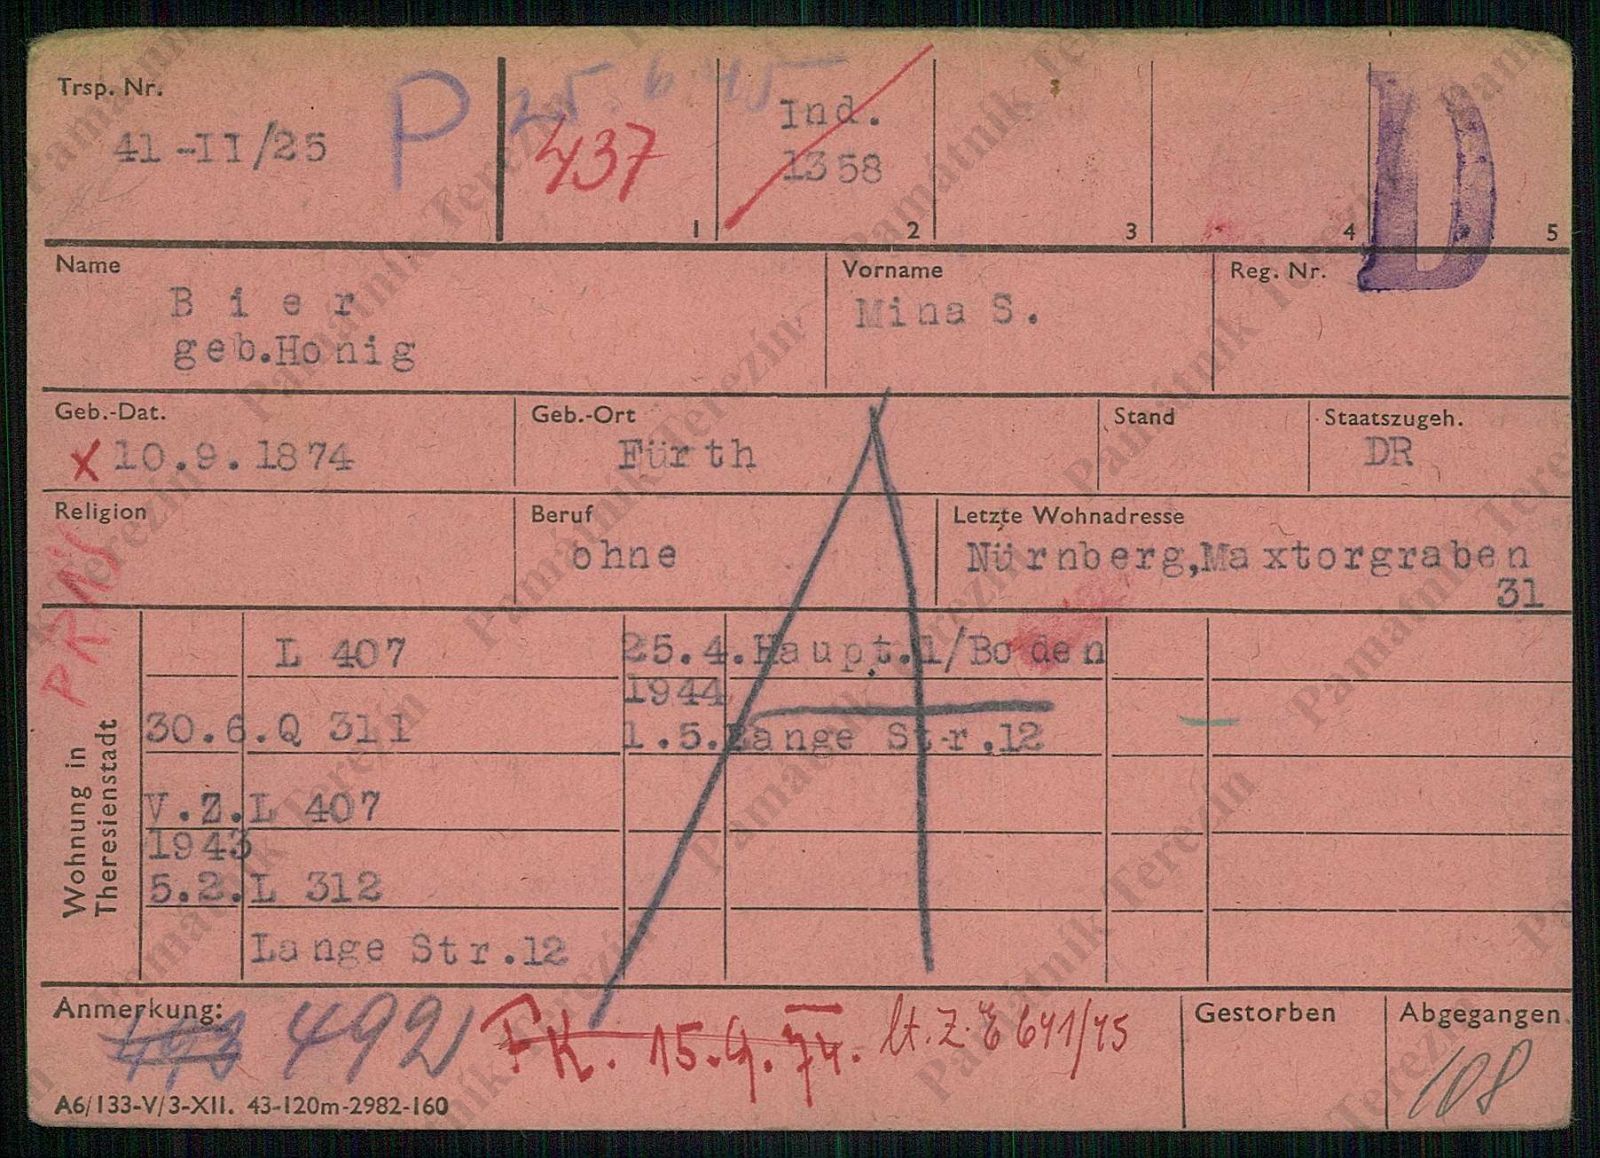 Trsp. Nr.
41-II/25
P
25.6.45
437
Ind.
1358
1
2
3
4
5
D
Name
Bier
geb.Honig
Vorname
Mina S.
Reg. Nr.
Geb.-Dat.
x 10.9.1874
Geb.-Ort
Fürth
Stand
Staatszugeh.
DR
Religion
Beruf
ohne
Letzte Wohnadresse
Nürnberg,Maxtorgraben
31
Wohnung in
Theresienstadt
L 407
30.6. Q 311
V.Z. L 407
1943
5.2. L 312
Lange Str.12
25.4. Haupt.1/Boden
1944
1.5. Lange Str.12
A
Anmerkung:
493 492
FK. 15.9.74. lt. Z. E 641/45
Gestorben
Abgegangen
108
A6/133-V/3-XII. 43-120m-2982-160
Památník Terezín